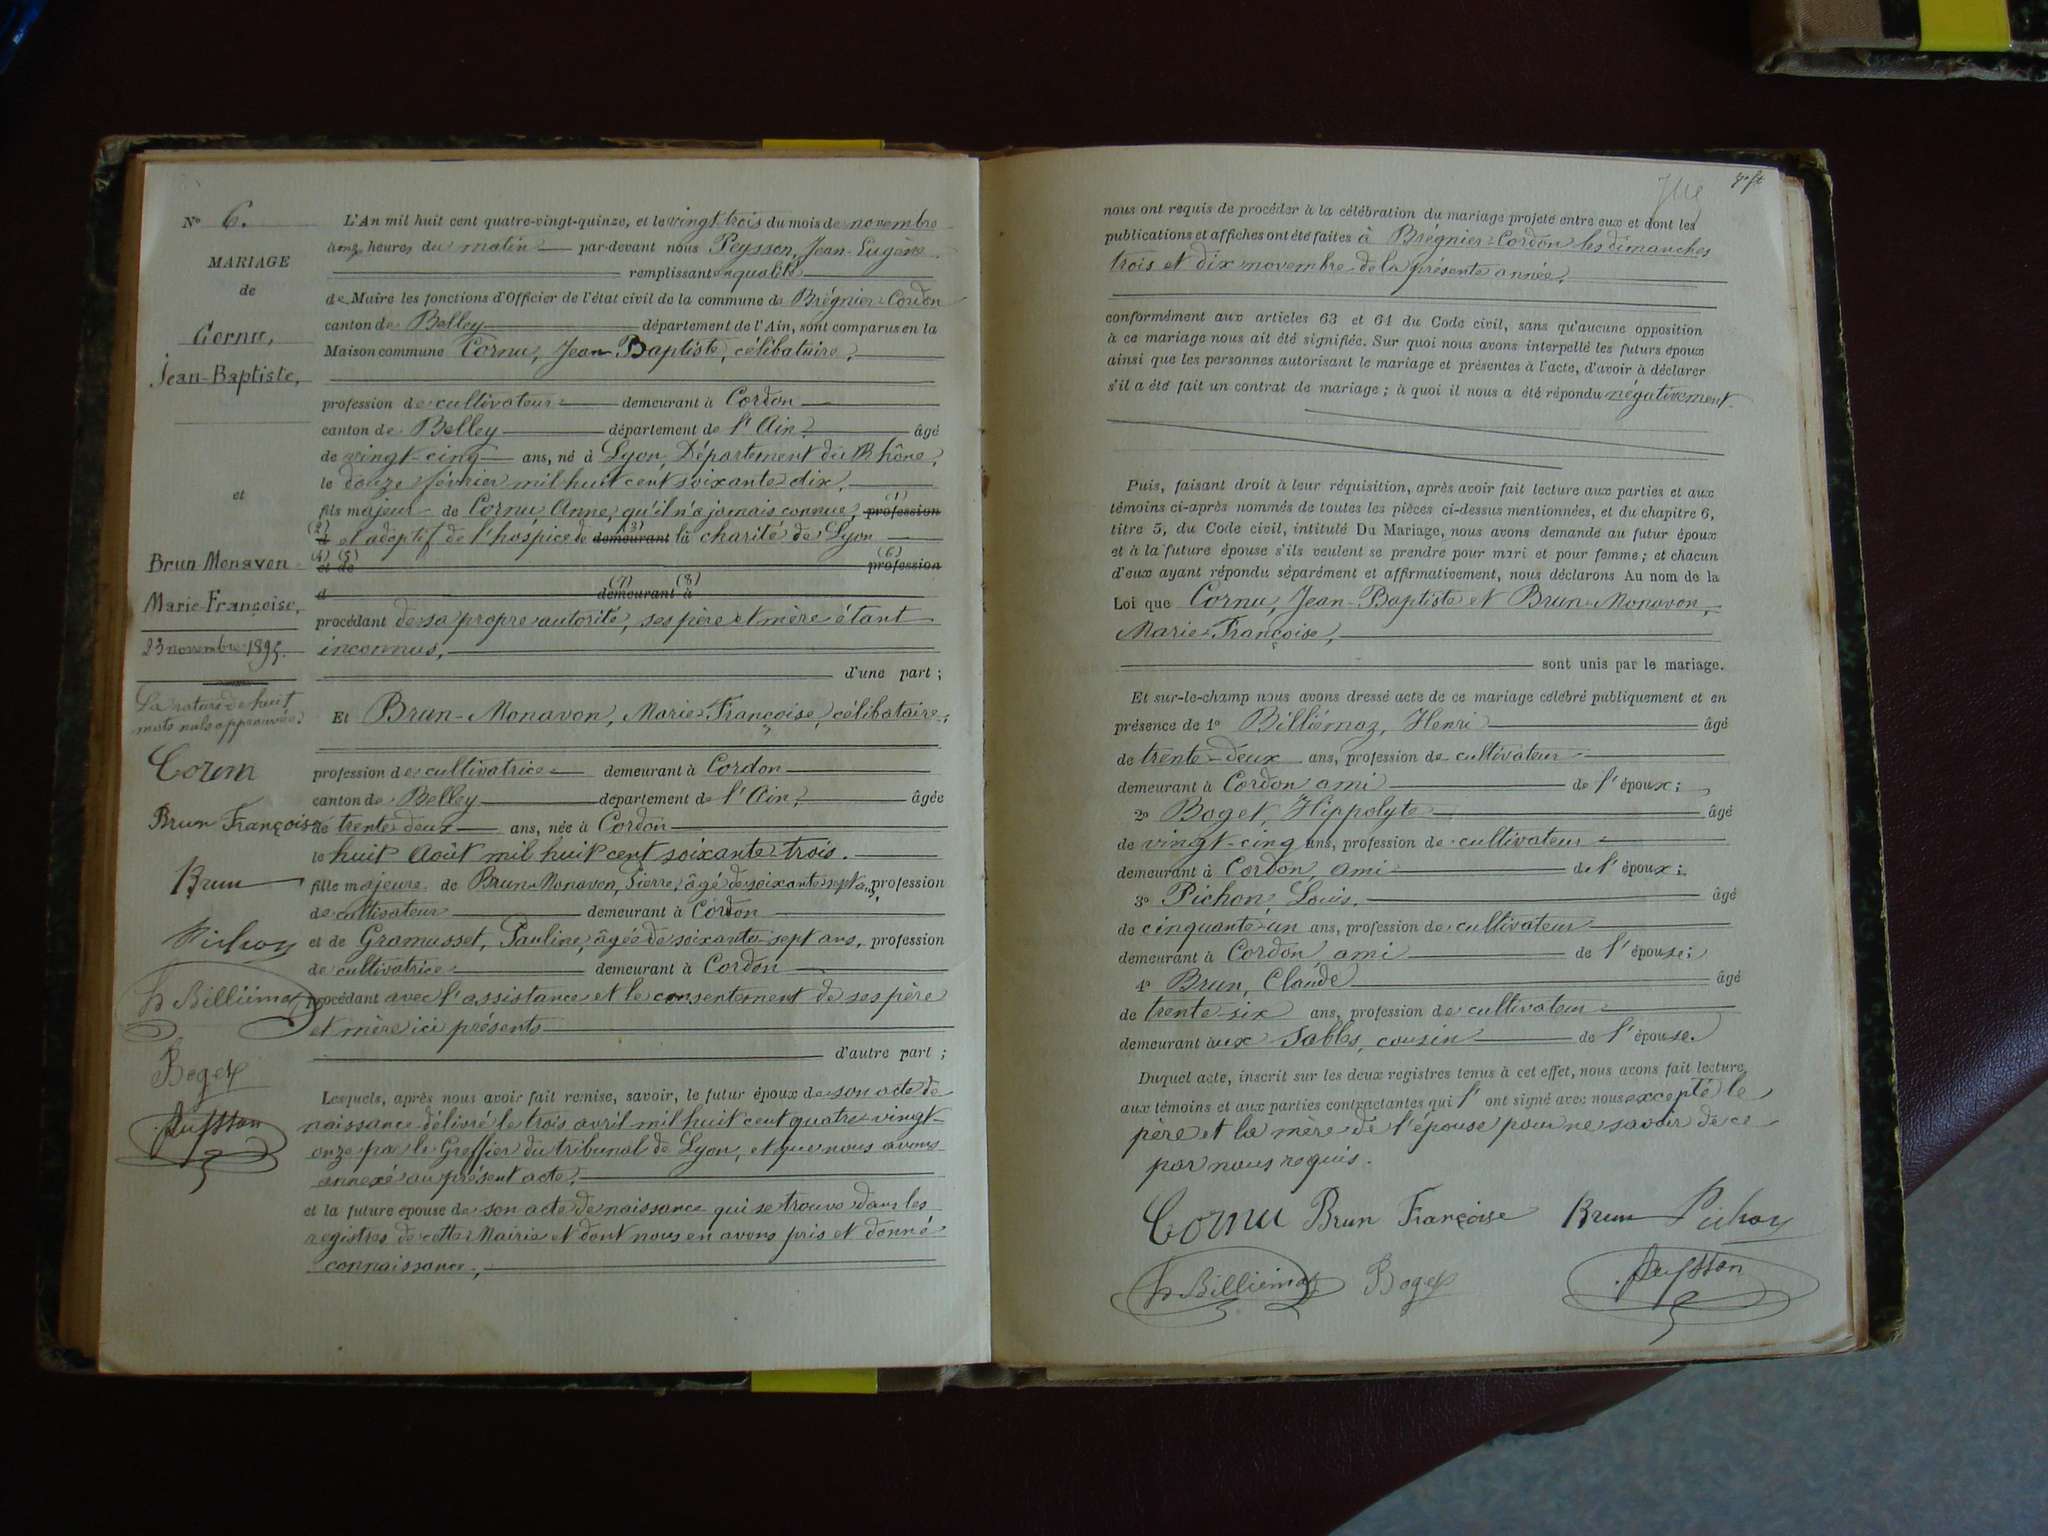 N° 6.
MARIAGE
de
Cornu,
Jean-Baptiste,
et
Brun-Monavon
Marie-Françoise,
23 novembre 1895.
La rature de huit
mots nuls approuvée.
Cornu
Brun Françoise
Brun
Pichon
h Billiémaz
Boget
Peysson
L'An mil huit cent quatre-vingt-quinze, et le vingt trois du mois de novembre
onze heures du matin par-devant nous Peysson, Jean-Eugène
remplissant en qualité
de Maire les fonctions d'Officier de l'état civil de la commune de Brégnier-Cordon
canton de Belley département de l'Ain, sont comparus en la
Maison commune Cornu, Jean-Baptiste, célibataire,
profession de cultivateur demeurant à Cordon
canton de Belley département de l'Ain, âgé
de vingt-cinq ans, né à Lyon, Département du Rhône,
le douze février mil huit cent soixante dix,
fils majeur de Cornu Anne, qu'il n'a jamais connue, (1) profession
(2) à et adoptif de l'hospice de (3) demeurant la charité de Lyon
(4) (5) et de (6) profession
d (7) demeurant (8) à
procédant de sa propre autorité, ses père et mère étant
inconnus,
d'une part ;
Et Brun-Monavon, Marie-Françoise, célibataire,
profession de cultivatrice demeurant à Cordon
canton de Belley département de l'Ain, âgée
de trente deux ans, née à Cordon
le huit Août mil huit cent soixante-trois.
fille majeure de Brun-Monavon, Pierre, âgé de soixante sept ans, profession
de cultivateur demeurant à Cordon
et de Gramusset, Pauline, âgée de soixante-sept ans, profession
de cultivatrice demeurant à Cordon
procédant avec l'assistance et le consentement de ses père
et mère ici présents
d'autre part ;
Lesquels, après nous avoir fait remise, savoir, le futur époux de son acte de
naissance délivré le trois avril mil huit cent quatre-vingt-
onze par le Greffier du tribunal de Lyon, et que nous avons
annexé au présent acte,
et la future épouse de son acte de naissance qui se trouve dans les
registres de cette Mairie et dont nous en avons pris et donné
connaissance,
nous ont requis de procéder à la célébration du mariage projeté entre eux et dont les
publications et affiches ont été faites à Brégnier-Cordon les dimanches
trois et dix novembre de la présente année,
conformément aux articles 63 et 64 du Code civil, sans qu'aucune opposition
à ce mariage nous ait été signifiée. Sur quoi nous avons interpellé les futurs époux
ainsi que les personnes autorisant le mariage et présentes à l'acte, d'avoir à déclarer
s'il a été fait un contrat de mariage ; à quoi il nous a été répondu négativement.
Puis, faisant droit à leur réquisition, après avoir fait lecture aux parties et aux
témoins ci-après nommés de toutes les pièces ci-dessus mentionnées, et du chapitre 6,
titre 5, du Code civil, intitulé Du Mariage, nous avons demandé au futur époux
et à la future épouse s'ils veulent se prendre pour mari et pour femme ; et chacun
d'eux ayant répondu séparément et affirmativement, nous déclarons Au nom de la
Loi que Cornu, Jean-Baptiste et Brun-Monavon,
Marie-Françoise,
sont unis par le mariage.
Et sur-le-champ nous avons dressé acte de ce mariage célébré publiquement et en
présence de 1° Billiémaz, Henri âgé
de trente-deux ans, profession de cultivateur
demeurant à Cordon ami de l'époux ;
2° Boget, Hippolyte âgé
de vingt-cinq ans, profession de cultivateur
demeurant à Cordon, ami de l'époux ;
3° Pichon Louis, âgé
de cinquante-un ans, profession de cultivateur
demeurant à Cordon, ami de l'épouse ;
4° Brun, Claude âgé
de trente-six ans, profession de cultivateur
demeurant aux Sables, cousin de l'épouse.
Duquel acte, inscrit sur les deux registres tenus à cet effet, nous avons fait lecture
aux témoins et aux parties contractantes qui l'ont signé avec nous excepté le
père et la mère de l'épouse pour ne savoir de ce
par nous requis.
Cornu Brun Françoise Brun Pichon
h Billiémaz Boget Peysson